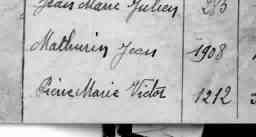 Jean Marie Julien 283
Mathurin Jean 1908
Pierre Marie Victor 1212